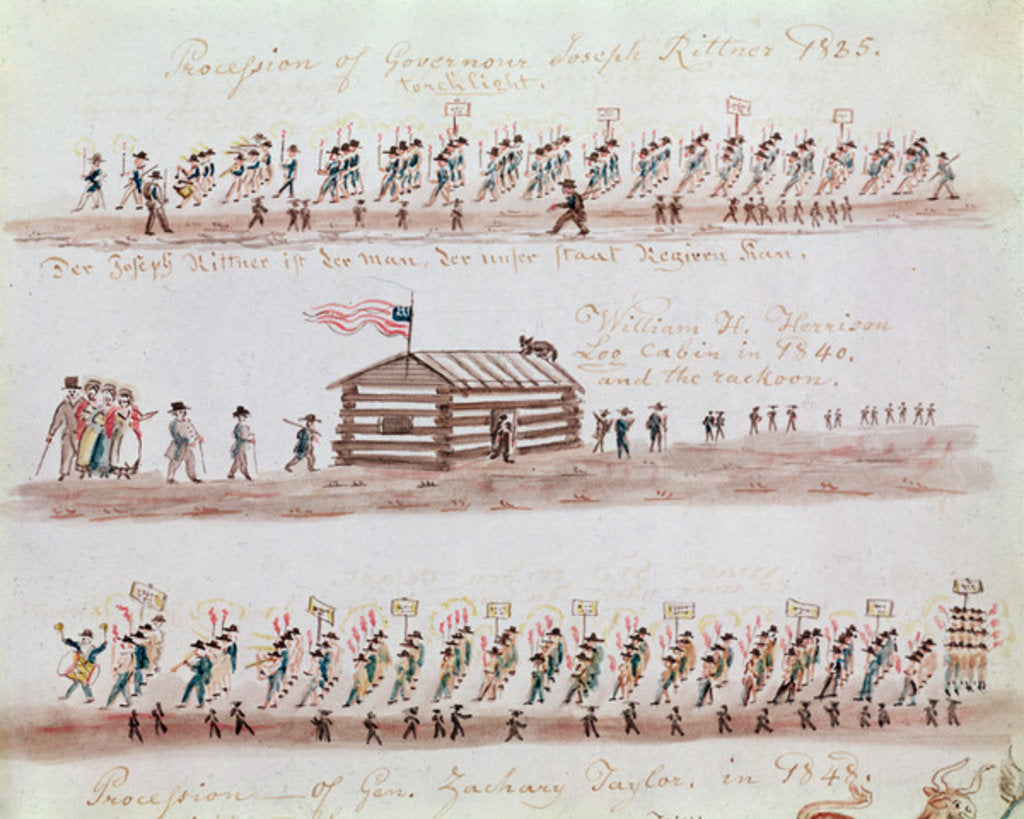 Procession of Governour Joseph Rittner 1835.
torchlight.
Der Joseph Rittner ist der man, der unser staat Regiren kan.
William H. Herrison
Log Cabin in 1840.
and the rackoon.
Procession of Gen. Zachary Taylor. in 1848.